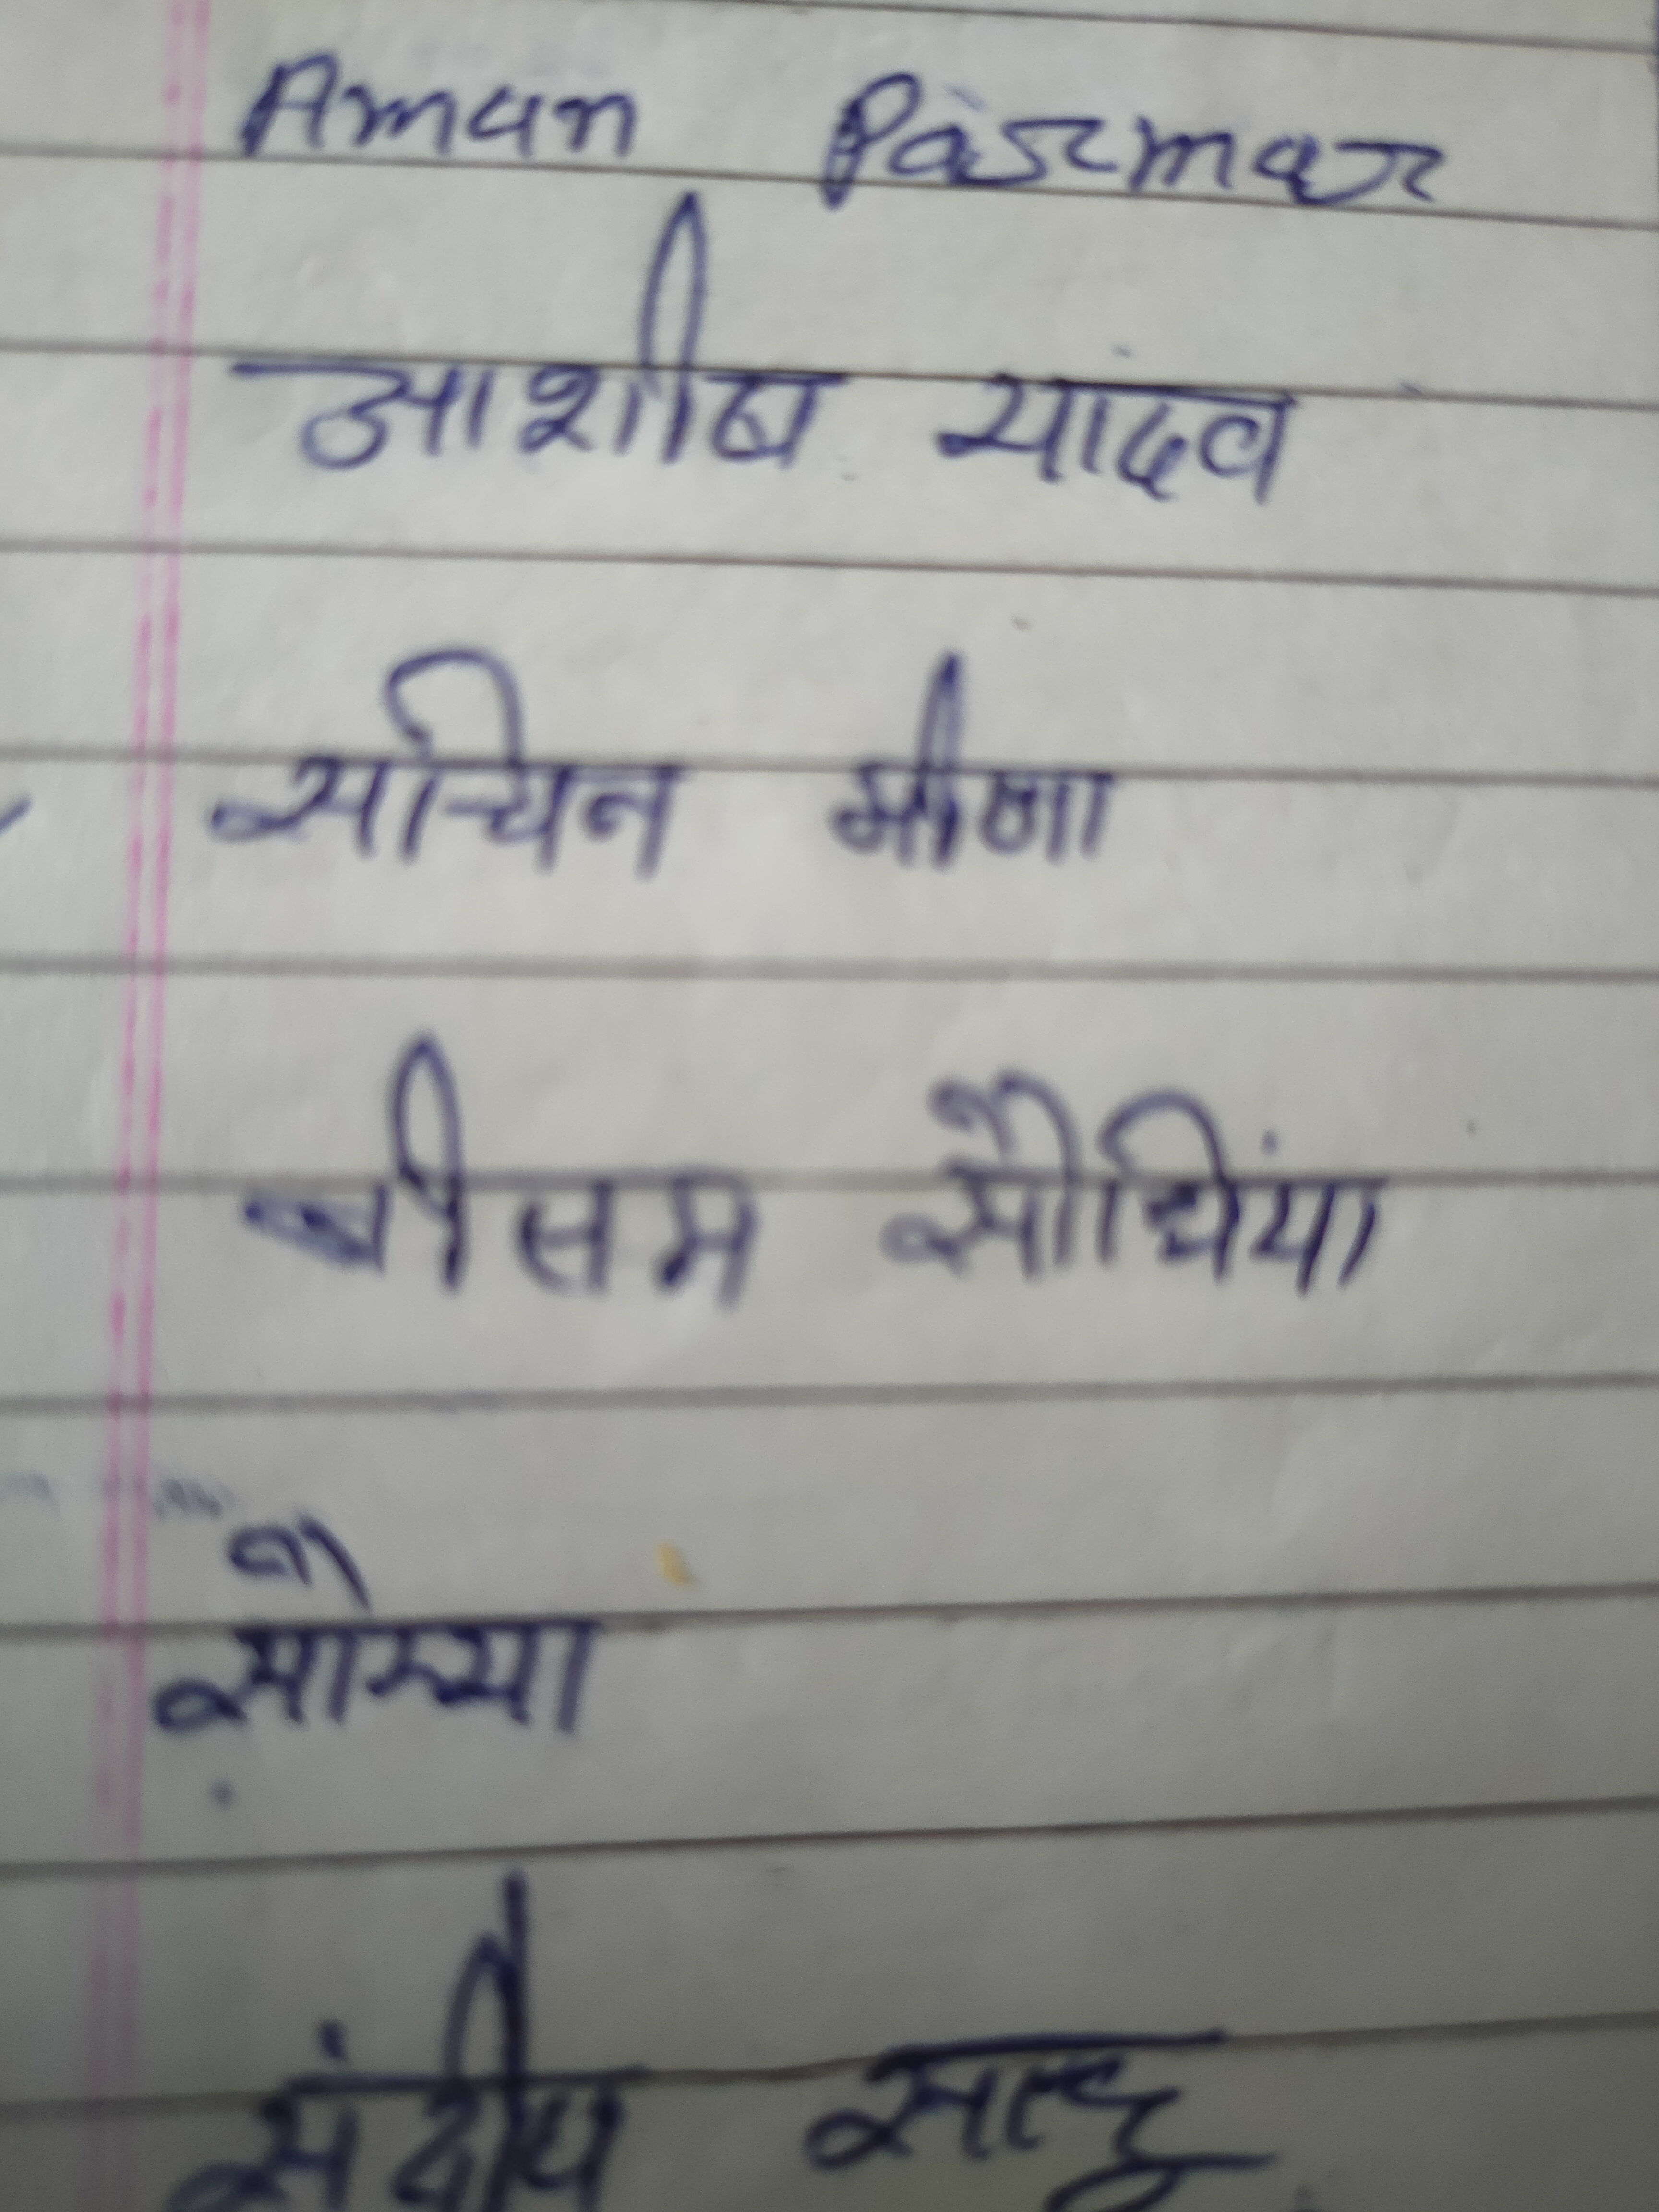 Aman Parmar
आशीष यादव
सचिन मीणा
सौंधिया
सौम्या
संदीप